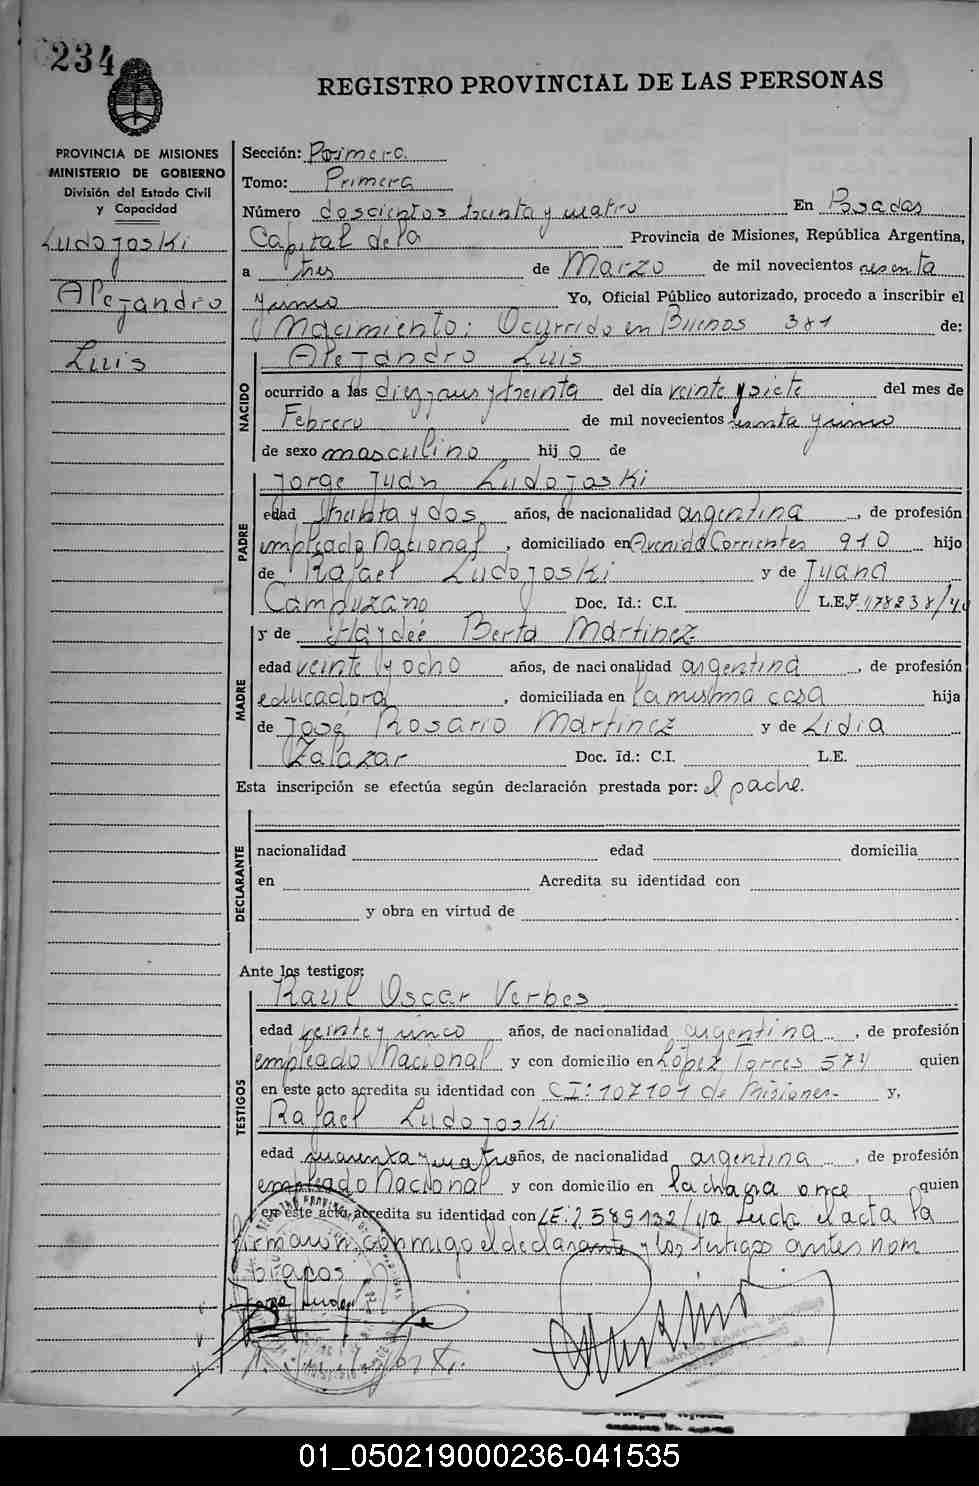 234
REGISTRO PROVINCIAL DE LAS PERSONAS
PROVINCIA DE MISIONES
MINISTERIO DE GOBIERNO
División del Estado Civil
y Capacidad
Ludojoski
Alejandro
Luis
Sección: Primera
Tomo: Primera
Número doscientos treinta y cuatro En Posadas
Capital de la Provincia de Misiones, República Argentina,
a tres de Marzo de mil novecientos sesenta
y uno Yo, Oficial Público autorizado, procedo a inscribir el
Nacimiento: Ocurrido en Buenos 381 de:
NACIDO
Alejandro Luis
ocurrido a las diez y treinta del día veinte y siete del mes de
Febrero de mil novecientos sesenta y uno
de sexo masculino hijo de
PADRE
Jorge Juan Ludojoski
edad treinta y dos años, de nacionalidad argentina, de profesión
empleado Nacional, domiciliado en Avenida Corrientes 910 hijo
de Rafael Ludojoski y de Juana
Campuzano Doc. Id.: C.I. L.E. 7.478238/40
MADRE
y de Haydeé Berta Martinez
edad veinte y ocho años, de nacionalidad argentina, de profesión
educadora, domiciliada en la misma casa hija
de José Rosario Martinez y de Lidia
Zalazar Doc. Id.: C.I. L.E.
Esta inscripción se efectúa según declaración prestada por: el padre.
DECLARANTE
nacionalidad edad domicilia
en Acredita su identidad con
y obra en virtud de
Ante los testigos:
TESTIGOS
Raúl Oscar Verbes
edad veinte y cinco años, de nacionalidad argentina, de profesión
empleado Nacional y con domicilio en López Torres 574 quien
en este acto acredita su identidad con CI: 107101 de Misiones- y,
Rafael Ludojoski
edad cuarenta y cuatro años, de nacionalidad argentina, de profesión
empleado Nacional y con domicilio en la chacra once quien
en este acto acredita su identidad con LE: 2.589132/40 Leida el acta la
firmaron conmigo el declarante y los testigos antes nom
brados
01_050219000236-041535